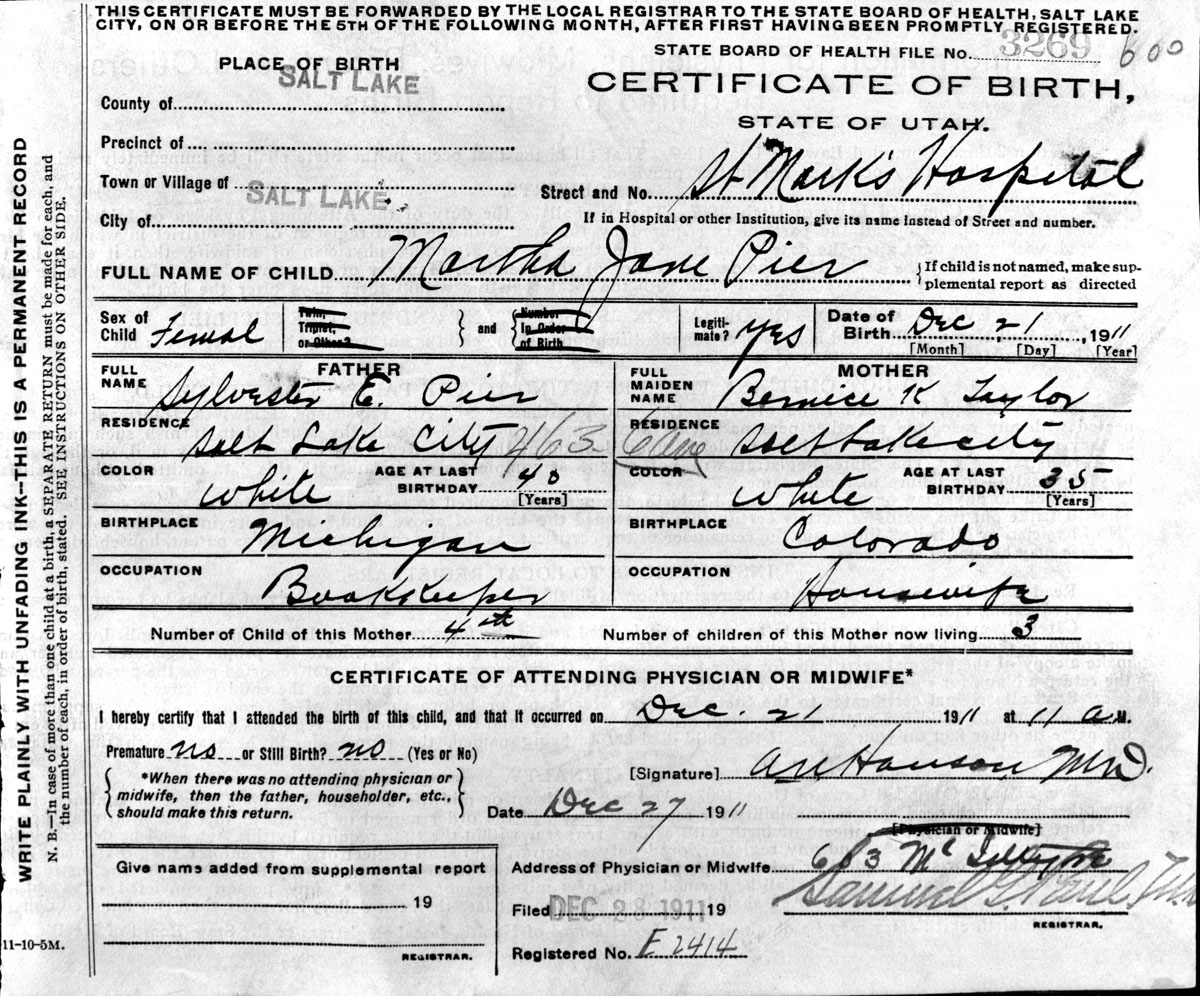 THIS CERTIFICATE MUST BE FORWARDED BY THE LOCAL REGISTRAR TO THE STATE BOARD OF HEALTH, SALT LAKE
CITY, ON OR BEFORE THE 5TH OF THE FOLLOWING MONTH, AFTER FIRST HAVING BEEN PROMPTLY REGISTERED.
STATE BOARD OF HEALTH FILE No. 3269 600
PLACE OF BIRTH
CERTIFICATE OF BIRTH,
STATE OF UTAH.
County of SALT LAKE
Precinct of
Town or Village of
Street and No. St Mark's Hospital
City of SALT LAKE
If in Hospital or other Institution, give its name instead of Street and number.
FULL NAME OF CHILD Martha Jane Pier {If child is not named, make sup-
plemental report as directed
Sex of Child Femal Twin, Triplet, or Other? and Number in Order of Birth Legiti-mate? yes Date of Birth Dec 21, 1911
[Month] [Day] [Year]
FATHER MOTHER
FULL NAME Sylvester E. Pier FULL MAIDEN NAME Bernice K Taylor
RESIDENCE Salt Lake City 463 6 Ave RESIDENCE Salt Lake City
COLOR White AGE AT LAST BIRTHDAY 40 [Years] COLOR White AGE AT LAST BIRTHDAY 35 [Years]
BIRTHPLACE Michigan BIRTHPLACE Colorado
OCCUPATION Bookkeeper OCCUPATION Housewife
Number of Child of this Mother 4th Number of children of this Mother now living 3
CERTIFICATE OF ATTENDING PHYSICIAN OR MIDWIFE*
I hereby certify that I attended the birth of this child, and that it occurred on Dec. 21 1911 at 11 A M.
Premature no or Still Birth? no (Yes or No)
*When there was no attending physician or
midwife, then the father, householder, etc.,
should make this return.
[Signature] Hanson MD.
Date Dec 27 1911
[Physician or Midwife]
Give name added from supplemental report
Address of Physician or Midwife 603
19
Filed DEC 28 1911 19 Samuel G. Paul
REGISTRAR.
Registered No. E 2414
REGISTRAR.
11-10-5M.
WRITE PLAINLY WITH UNFADING INK—THIS IS A PERMANENT RECORD
N. B.—In case of more than one child at a birth, a SEPARATE RETURN must be made for each, and
the number of each, in order of birth, stated. SEE INSTRUCTIONS ON OTHER SIDE.